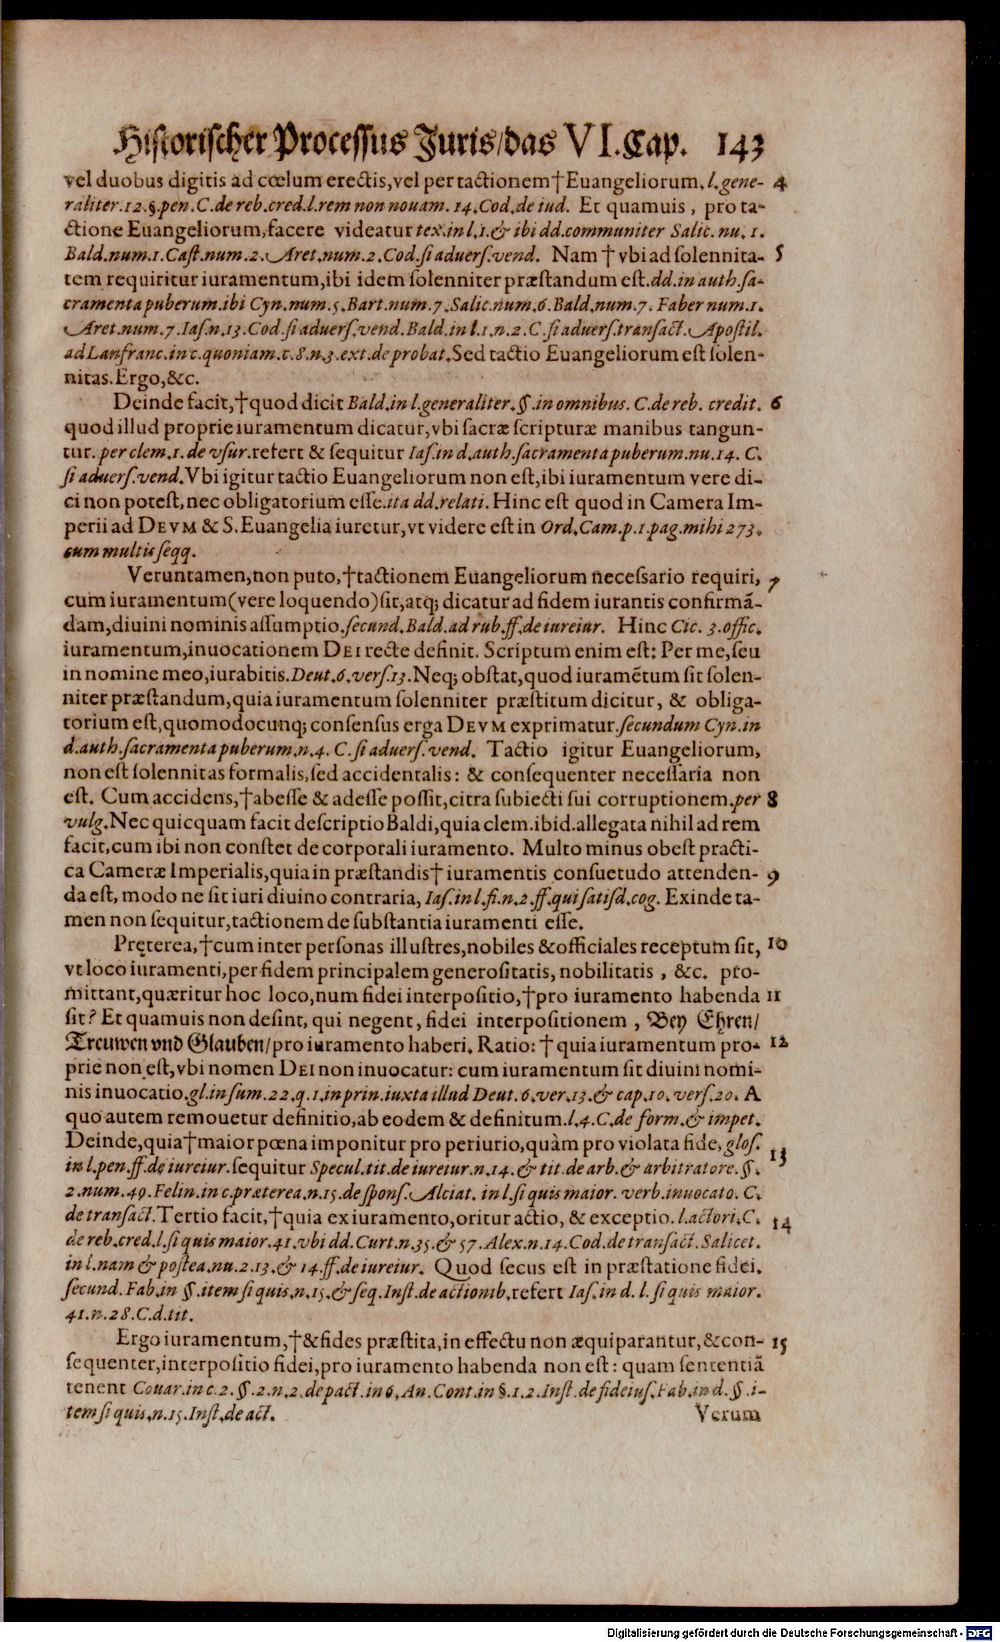 Historischer Processus Juris/das VI. Cap. 143
vel duobus digitis ad cœlum erectis, vel per tactionem † Euangeliorum. l. gene- 4
raliter. 12. §. pen. C. de reb. cred. l. rem non nouam. 14. Cod. de iud. Et quamuis, pro ta-
ctione Euangeliorum, facere videatur tex. in l. 1. & ibi dd. communiter Salic. nu. 1.
Bald. num. 1. Cast. num. 2. Aret. num. 2. Cod. si aduers. vend. Nam † vbi ad solennita- 5
tem requiritur iuramentum, ibi idem solenniter præstandum est. dd. in auth. sa-
cramenta puberum. ibi Cyn. num. 5. Bart. num. 7. Salic. num. 6. Bald. num. 7. Faber num. 1.
Aret. num. 7. Ias. n. 13. Cod. si aduers. vend. Bald. in l. 1. n. 2. C. si aduers. transact. Apostil.
ad Lanfranc. in c. quoniam. c. 8. n. 3. ext. de probat. Sed tactio Euangeliorum est solen-
nitas. Ergo, &c.
Deinde facit, † quod dicit Bald. in l. generaliter. §. in omnibus. C. de reb. credit. 6
quod illud proprie iuramentum dicatur, vbi sacræ scripturæ manibus tangun-
tur. per clem. 1. de vsur. refert & sequitur Ias. in d. auth. sacramenta puberum. nu. 14. C.
si aduers. vend. Vbi igitur tactio Euangeliorum non est, ibi iuramentum vere di-
ci non potest, nec obligatorium esse. ita dd. relati. Hinc est quod in Camera Im-
perii ad DEVM & S. Euangelia iuretur, vt videre est in Ord. Cam. p. 1. pag. mihi 273.
cum multis seqq.
Veruntamen, non puto, † tactionem Euangeliorum necessario requiri, 7
cum iuramentum (vere loquendo) sit, atq; dicatur ad fidem iurantis confirmã-
dam, diuini nominis assumptio. secund. Bald. ad rub. ff. de iureiur. Hinc Cic. 3. offic.
iuramentum, inuocationem DEI recte definit. Scriptum enim est: Per me, seu
in nomine meo, iurabitis. Deut. 6. vers. 13. Neq; obstat, quod iuramẽtum sit solen-
niter præstandum, quia iuramentum solenniter præstitum dicitur, & obliga-
torium est, quomodocunq; consensus erga DEVM exprimatur. secundum Cyn. in
d. auth. sacramenta puberum. n. 4. C. si aduers. vend. Tactio igitur Euangeliorum,
non est solennitas formalis, sed accidentalis: & consequenter necessaria non
est. Cum accidens, † abesse & adesse possit, citra subiecti sui corruptionem. per 8
vulg. Nec quicquam facit descriptio Baldi, quia clem. ibid. allegata nihil ad rem
facit, cum ibi non constet de corporali iuramento. Multo minus obest practi-
ca Cameræ Imperialis, quia in præstandis † iuramentis consuetudo attenden- 9
da est, modo ne sit iuri diuino contraria, Ias. in l. fi. n. 2. ff. qui satisd. cog. Exinde ta-
men non sequitur, tactionem de substantia iuramenti esse.
Pręterea, † cum inter personas illustres, nobiles & officiales receptum sit, 10
vt loco iuramenti, per fidem principalem generositatis, nobilitatis, &c. pro-
mittant, quæritur hoc loco, num fidei interpositio, † pro iuramento habenda 11
sit? Et quamuis non desint, qui negent, fidei interpositionem, Bey Ehren/
Treuwen vnd Glauben/ pro iuramento haberi. Ratio: † quia iuramentum pro- 12
prie non est, vbi nomen DEI non inuocatur: cum iuramentum sit diuini nomi-
nis inuocatio. gl. in sum. 22. q. 1. in prin. iuxta illud Deut. 6. ver. 13. & cap. 10. vers. 20. A
quo autem remouetur definitio, ab eodem & definitum. l. 4. C. de form. & impet.
Deinde, quia † maior pœna imponitur pro periurio, quàm pro violata fide, glos. 13
in l. pen. ff. de iureiur. sequitur Specul. tit. de iureiur. n. 14. & tit. de arb. & arbitratore. §.
2. num. 49. Felin. in c. præterea. n. 15. de spons. Alciat. in l. si quis maior. verb. inuocato. C.
de transact. Tertio facit, † quia ex iuramento, oritur actio, & exceptio. l. actori. C. 14
de reb. cred. l. si quis maior. 41. vbi dd. Curt. n. 35. & 57. Alex. n. 14. Cod. de transact. Salicet.
in l. nam & postea. nu. 2. 13. & 14. ff. de iureiur. Quod secus est in præstatione fidei.
secund. Fab. in §. item si quis. n. 15. & seq. Inst. de actionib. refert Ias. in d. l. si quis maior.
41. n. 28. C. d. tit.
Ergo iuramentum, † & fides præstita, in effectu non æquiparantur, & con- 15
sequenter, interpositio fidei, pro iuramento habenda non est: quam sententiã
tenent Couar. in c. 2. §. 2. n. 2. de pact. in 6. An. Cont. in §. 1. 2. Inst. de fideius. Fab. in d. §. i-
tem si quis. n. 15. Inst. de act.
Verum
Digitalisierung gefördert durch die Deutsche Forschungsgemeinschaft - DFG